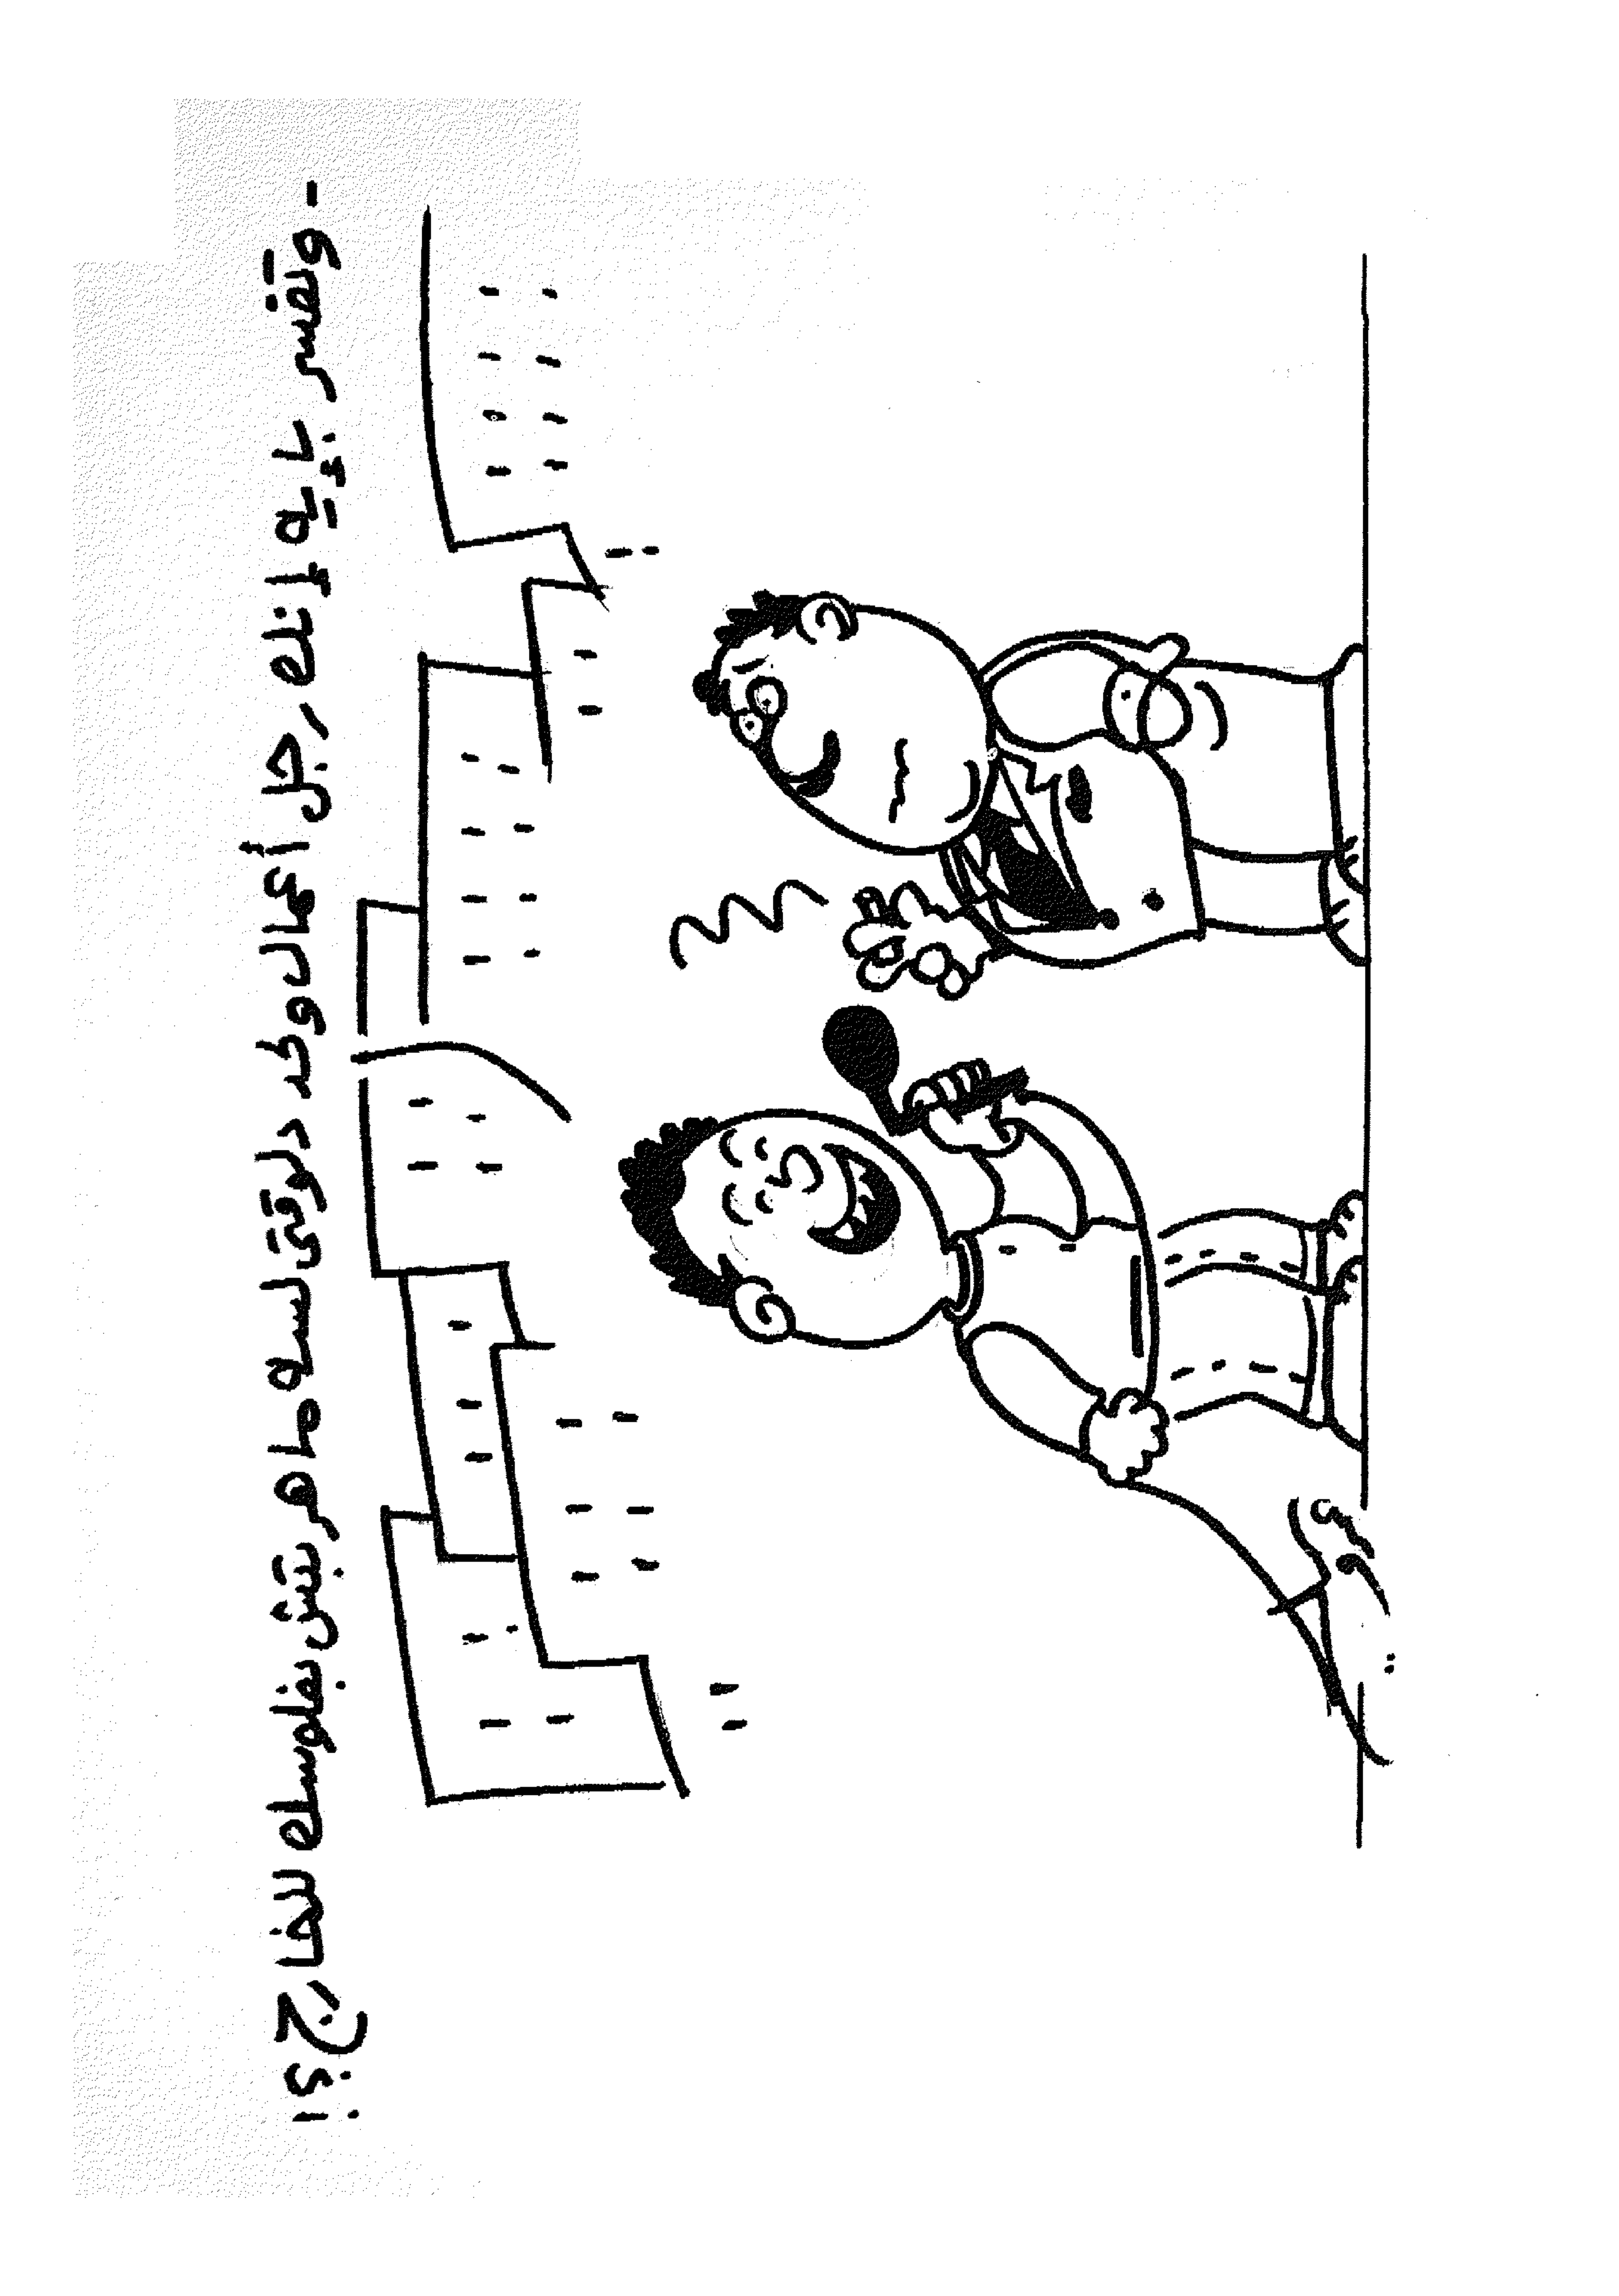 - وتفسر بإيه إنك رجل أعمال ولحد دلوقتى لسه ماهربتش بفلوسك للخارج ؟!